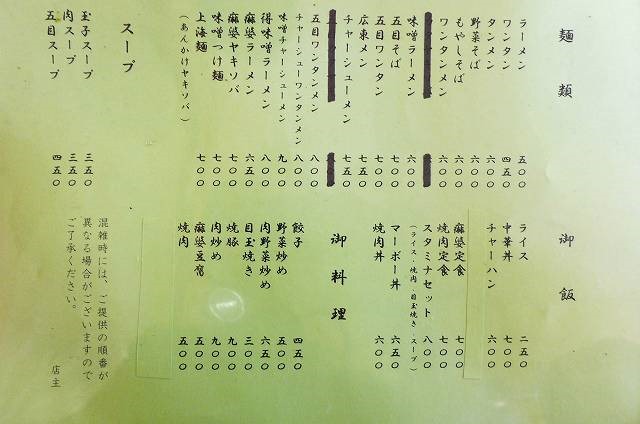 麺類
ラーメン 五〇〇
ワンタン 四五〇
タンメン 六〇〇
野菜そば 六〇〇
もやしそば 六〇〇
ワンタンメン 六〇〇
味噌ラーメン 六〇〇
五目そば 七〇〇
五目ワンタン 七〇〇
広東メン 七五〇
チャーシューメン 七五〇
五目ワンタンメン 八〇〇
チャーシューワンタンメン 八〇〇
味噌チャーシューメン 九〇〇
得味噌ラーメン 八〇〇
麻婆ラーメン 六五〇
麻婆ヤキソバ 七〇〇
味噌つけ麺 七〇〇
上海麺 七〇〇
(あんかけヤキソバ)
スープ
玉子スープ 三五〇
肉スープ 三五〇
五目スープ 四五〇
御飯
ライス 二五〇
中華丼 七〇〇
チャーハン 六〇〇
麻婆定食 七〇〇
焼肉定食 七〇〇
スタミナセット 八〇〇
(ライス・焼肉・目玉焼き・スープ)
マーボー丼 六五〇
焼肉丼 六〇〇
御料理
餃子 四五〇
野菜炒め 五〇〇
肉野菜炒め 六五〇
目玉焼き 三〇〇
焼豚 九〇〇
肉炒め 九〇〇
麻婆豆腐 五〇〇
焼肉 五〇〇
混雑時には、ご提供の順番が
異なる場合がございますので
ご了承ください。
店主